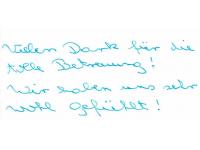 Vielen Dank für die
tolle Betreuung!
Wir haben uns sehr
wohl gefühlt!